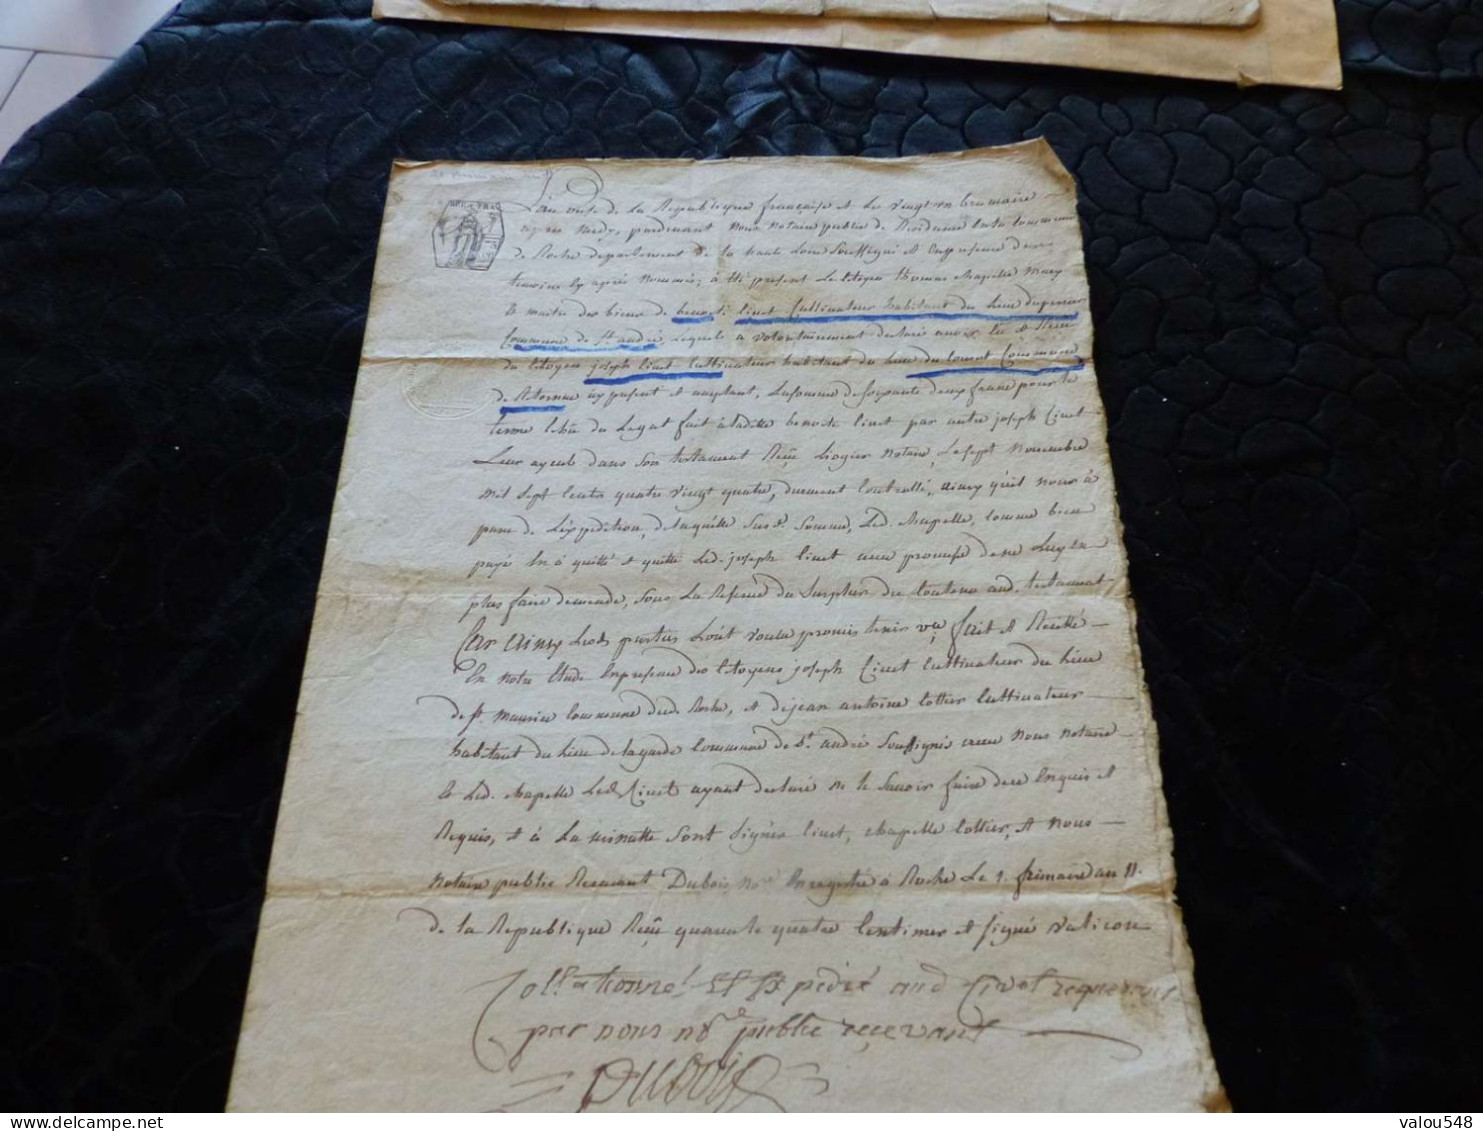 L'an onze de la République française et le vingt un brumaire
après midy, pardevant nous notaire public de Résidence la commune
de Roche département de la haute Loire Soussigné et En présence des
temoins cy après nommés; à été présent Le Citoyen thomas chapelle mary
le maitre des biens de benoite Civet Cultivateur habitant du Lieu
Commune de St andré, Lequel a volontairement declaré avoir Reçu
du Citoyen joseph Civet Cultivateur habitant du Lieu du Commune
de Retornac cy présent et acceptant, La somme de soixante deux francs pour le
terme Echu du Legat fait à ladite benoite Civet par autre joseph Civet
Leur ayeul dans son testament Reçu Liogier Notaire, Le sept Novembre
Mil Sept Cents quatre vingt quatre, duement Controllé, ainsy qu'il nous à
paru de L'expedition, de laquelle Susd. Somme, Led. chapelle, Comme bien
payé En à quitté et quitte Led. joseph Civet avec promesse de ne Luy En
plus faire demande, Sous La Reserve du Surplus du Contenu aud. testament
Car ainsy Lesd. parties L'ont voulu promis tenir fait et Recitté
En notre Etude En présence des Citoyens joseph Civet Cultivateur du Lieu
de St. maurice Commune dud. Roche, et de jean antoine Cottier Cultivateur
habitant du Lieu de la garde Commune de St. andré Soussignés avec Nous notaire
Led. chapelle Led. Civet ayant declaré ne le Savoir faire de ce Enquis et
Requis, et à La minutte Sont Signés Civet, chapelle Cottier, et nous
notaire public Recevant Dubois, no.re Enregistré à Roche Le 1. frimaire an 11.
de la République Reçu quarante quatre Centimes et signé Valicon
Collationné Et Expedié aud Civet requerant
par nous no.re public recevant
Dubois
valou548